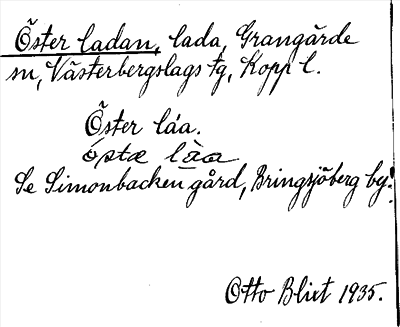 Öster ladan, lada, Grangärde
sn, Västerbergslags tg, Kopp l.
Öster lá'a.
östæ làa
Se Simonbacken gård, Bringsjöberg by.
Otto Blixt 1935.